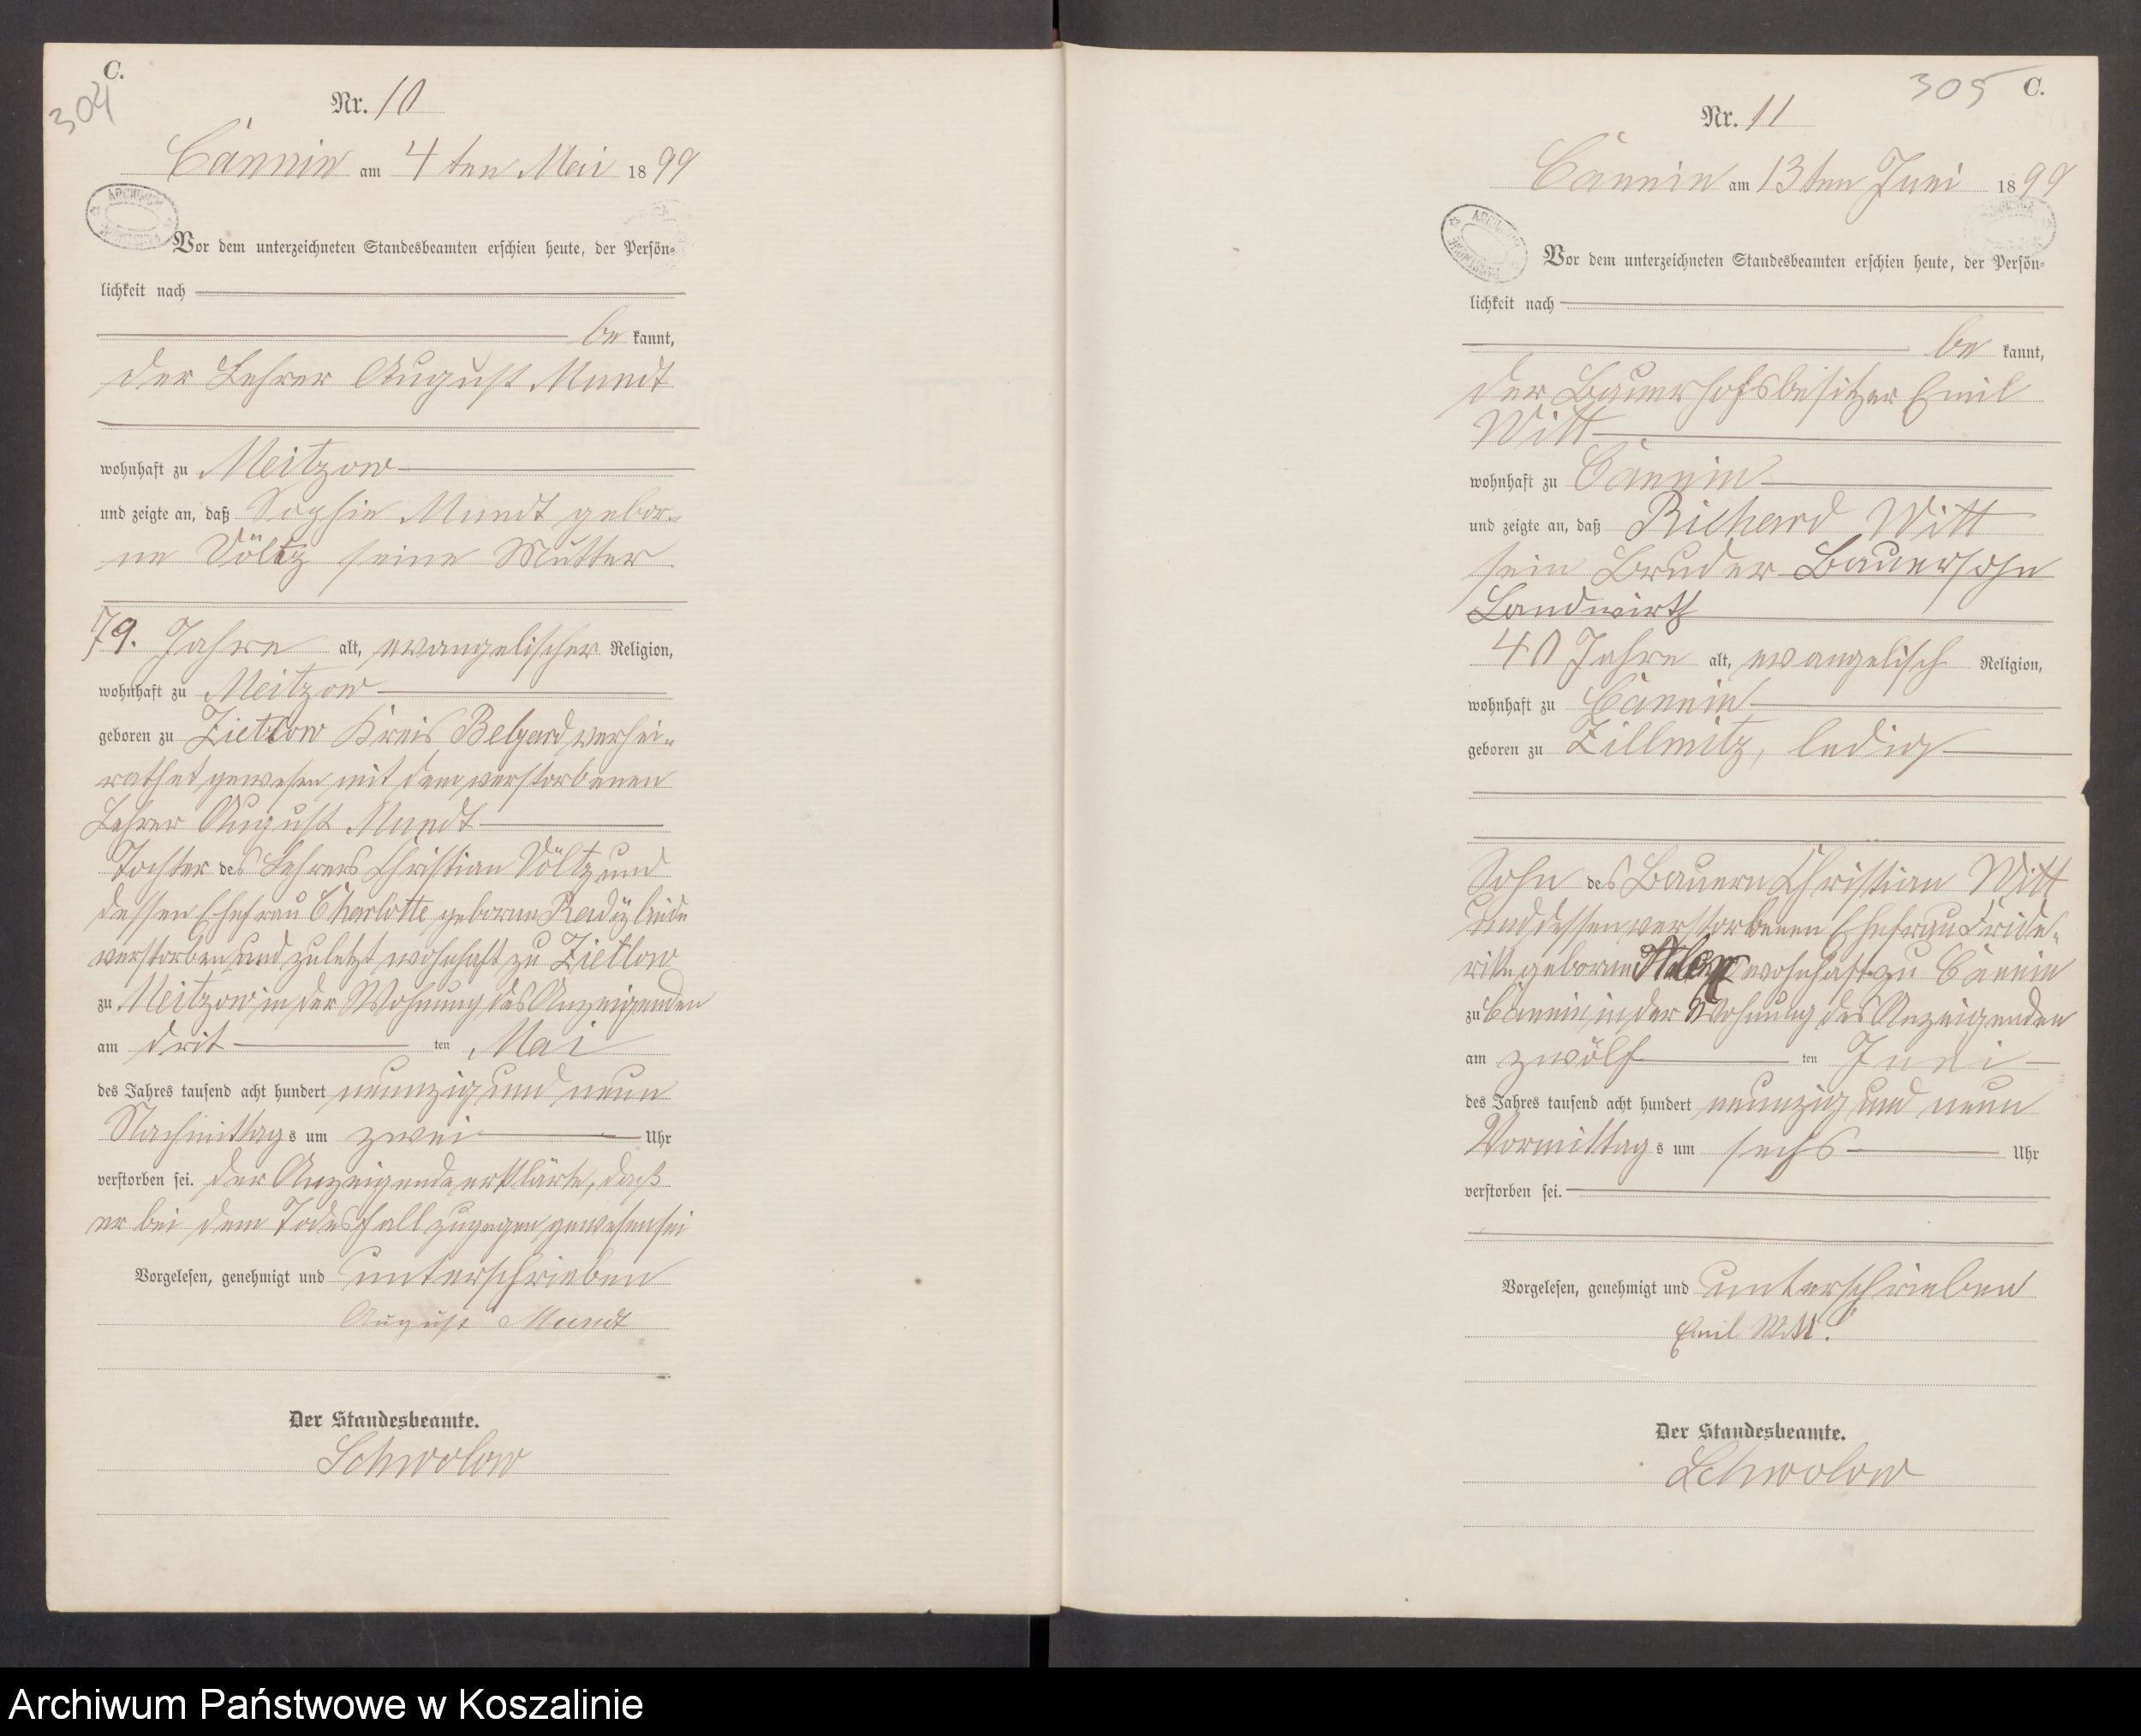 C.
304
Nr. 10
Cännin am 4 ten Mai 1899
Vor dem unterzeichneten Standesbeamten erschien heute, der Persön-
lichkeit nach
be kannt,
der Lehrer August Mundt
wohnhaft zu Meitzow
und zeigte an, daß Sophie Mundt gebor-
ne Völtz seine Mutter
79. Jahre alt, evangelischer Religion,
wohnhaft zu Meitzow
geboren zu Zietlow Kreis Belgard, verhei-
rathet gewesen mit dem verstorbenen
Lehrer August Mundt
Tochter des Lehrers Christian Völtz und
dessen Ehefrau Charlotte geborne Radtz beide
verstorben und zuletzt wohnhaft zu Zietlow
zu Meitzow in der Wohnung des Anzeigenden
am drit ten Mai
des Jahres tausend acht hundert neunzig und neun
Nachmittags um zwei Uhr
verstorben sei. Der Anzeigende erklärte, daß
er bei dem Todesfall zugegen gewesen sei
Vorgelesen, genehmigt und unterschrieben
August Mundt
Der Standesbeamte.
Schwolow
305 C.
Nr. 11
Cännin am 13 ten Juni 1899
Vor dem unterzeichneten Standesbeamten erschien heute, der Persön-
lichkeit nach
be kannt,
der Bauerhofsbesitzer Emil
Witt
wohnhaft zu Cännin
und zeigte an, daß Richard Witt
sein Bruder Bauersohn
Landwirth
40 Jahre alt, evangelisch Religion,
wohnhaft zu Cännin
geboren zu Zillmitz, ledig
Sohn des Bauern Christian Witt
und dessen verstorbenen Ehefrau Fride-
rike geborne wohnhaft zu Cännin
zu Cännin in der Wohnung des Anzeigenden
am zwölf ten Juni
des Jahres tausend acht hundert neunzig und neun
Vormittags um sechs Uhr
verstorben sei.
Vorgelesen, genehmigt und unterschrieben
Emil Witt.
Der Standesbeamte.
Schwolow
Archiwum Państwowe w Koszalinie